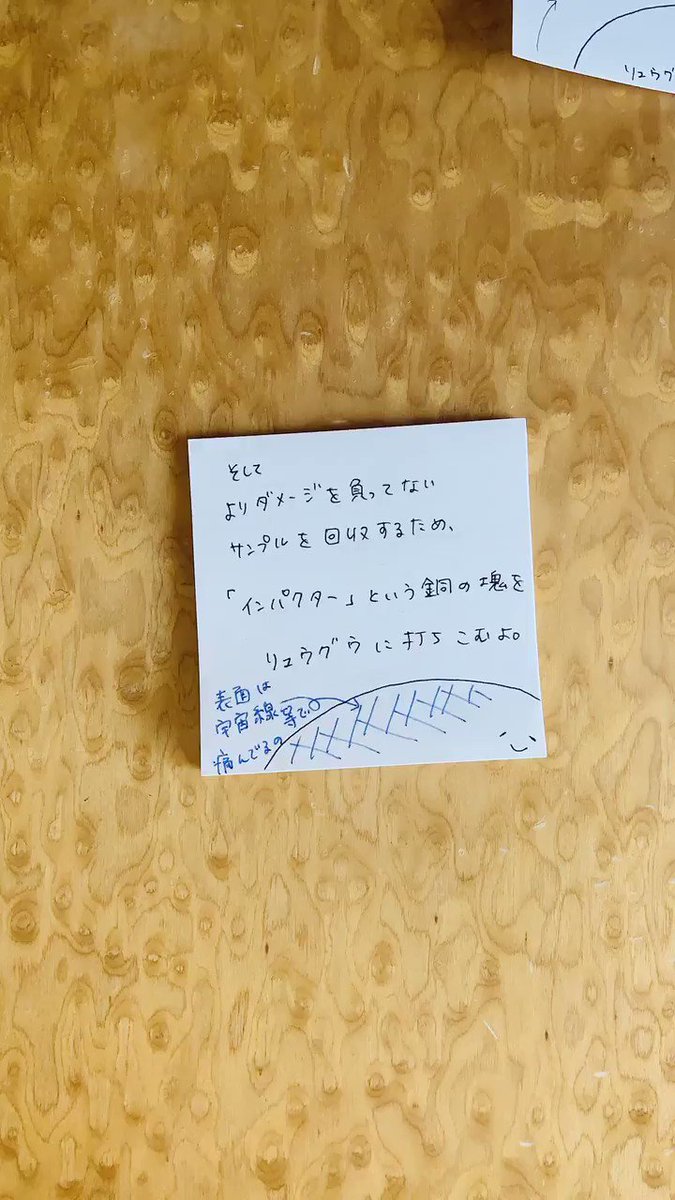 リュウグ
そして
よりダメージを負ってない
サンプルを回収するため、
「インパクター」という銅の塊を
リュウグウに打ちこむよ。
表面は
宇宙線等で
病んでるの